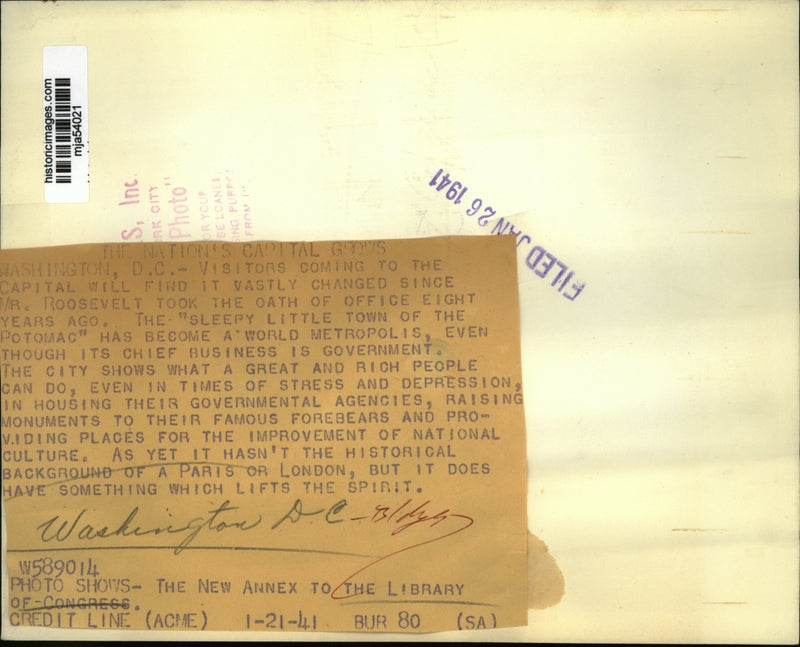 historicimages.com
mja54021
S, Inc.
RK CITY
Photo"
OR YOUR
BE LOANED
FROM
FILED JAN 26 1941
THE NATION'S CAPITAL GROWS
WASHINGTON, D.C.- VISITORS COMING TO THE
CAPITAL WILL FIND IT VASTLY CHANGED SINCE
MR. ROOSEVELT TOOK THE OATH OF OFFICE EIGHT
YEARS AGO. THE "SLEEPY LITTLE TOWN OF THE
POTOMAC" HAS BECOME A WORLD METROPOLIS, EVEN
THOUGH ITS CHIEF BUSINESS IS GOVERNMENT.
THE CITY SHOWS WHAT A GREAT AND RICH PEOPLE
CAN DO, EVEN IN TIMES OF STRESS AND DEPRESSION,
IN HOUSING THEIR GOVERNMENTAL AGENCIES, RAISING
MONUMENTS TO THEIR FAMOUS FOREBEARS AND PRO-
VIDING PLACES FOR THE IMPROVEMENT OF NATIONAL
CULTURE. AS YET IT HASN'T THE HISTORICAL
BACKGROUND OF A PARIS OR LONDON, BUT IT DOES
HAVE SOMETHING WHICH LIFTS THE SPIRIT.
Washington D C - Bldgs
W589014
PHOTO SHOWS- THE NEW ANNEX TO THE LIBRARY
OF CONGRESS.
CREDIT LINE (ACME) 1-21-41 BUR 80 (SA)